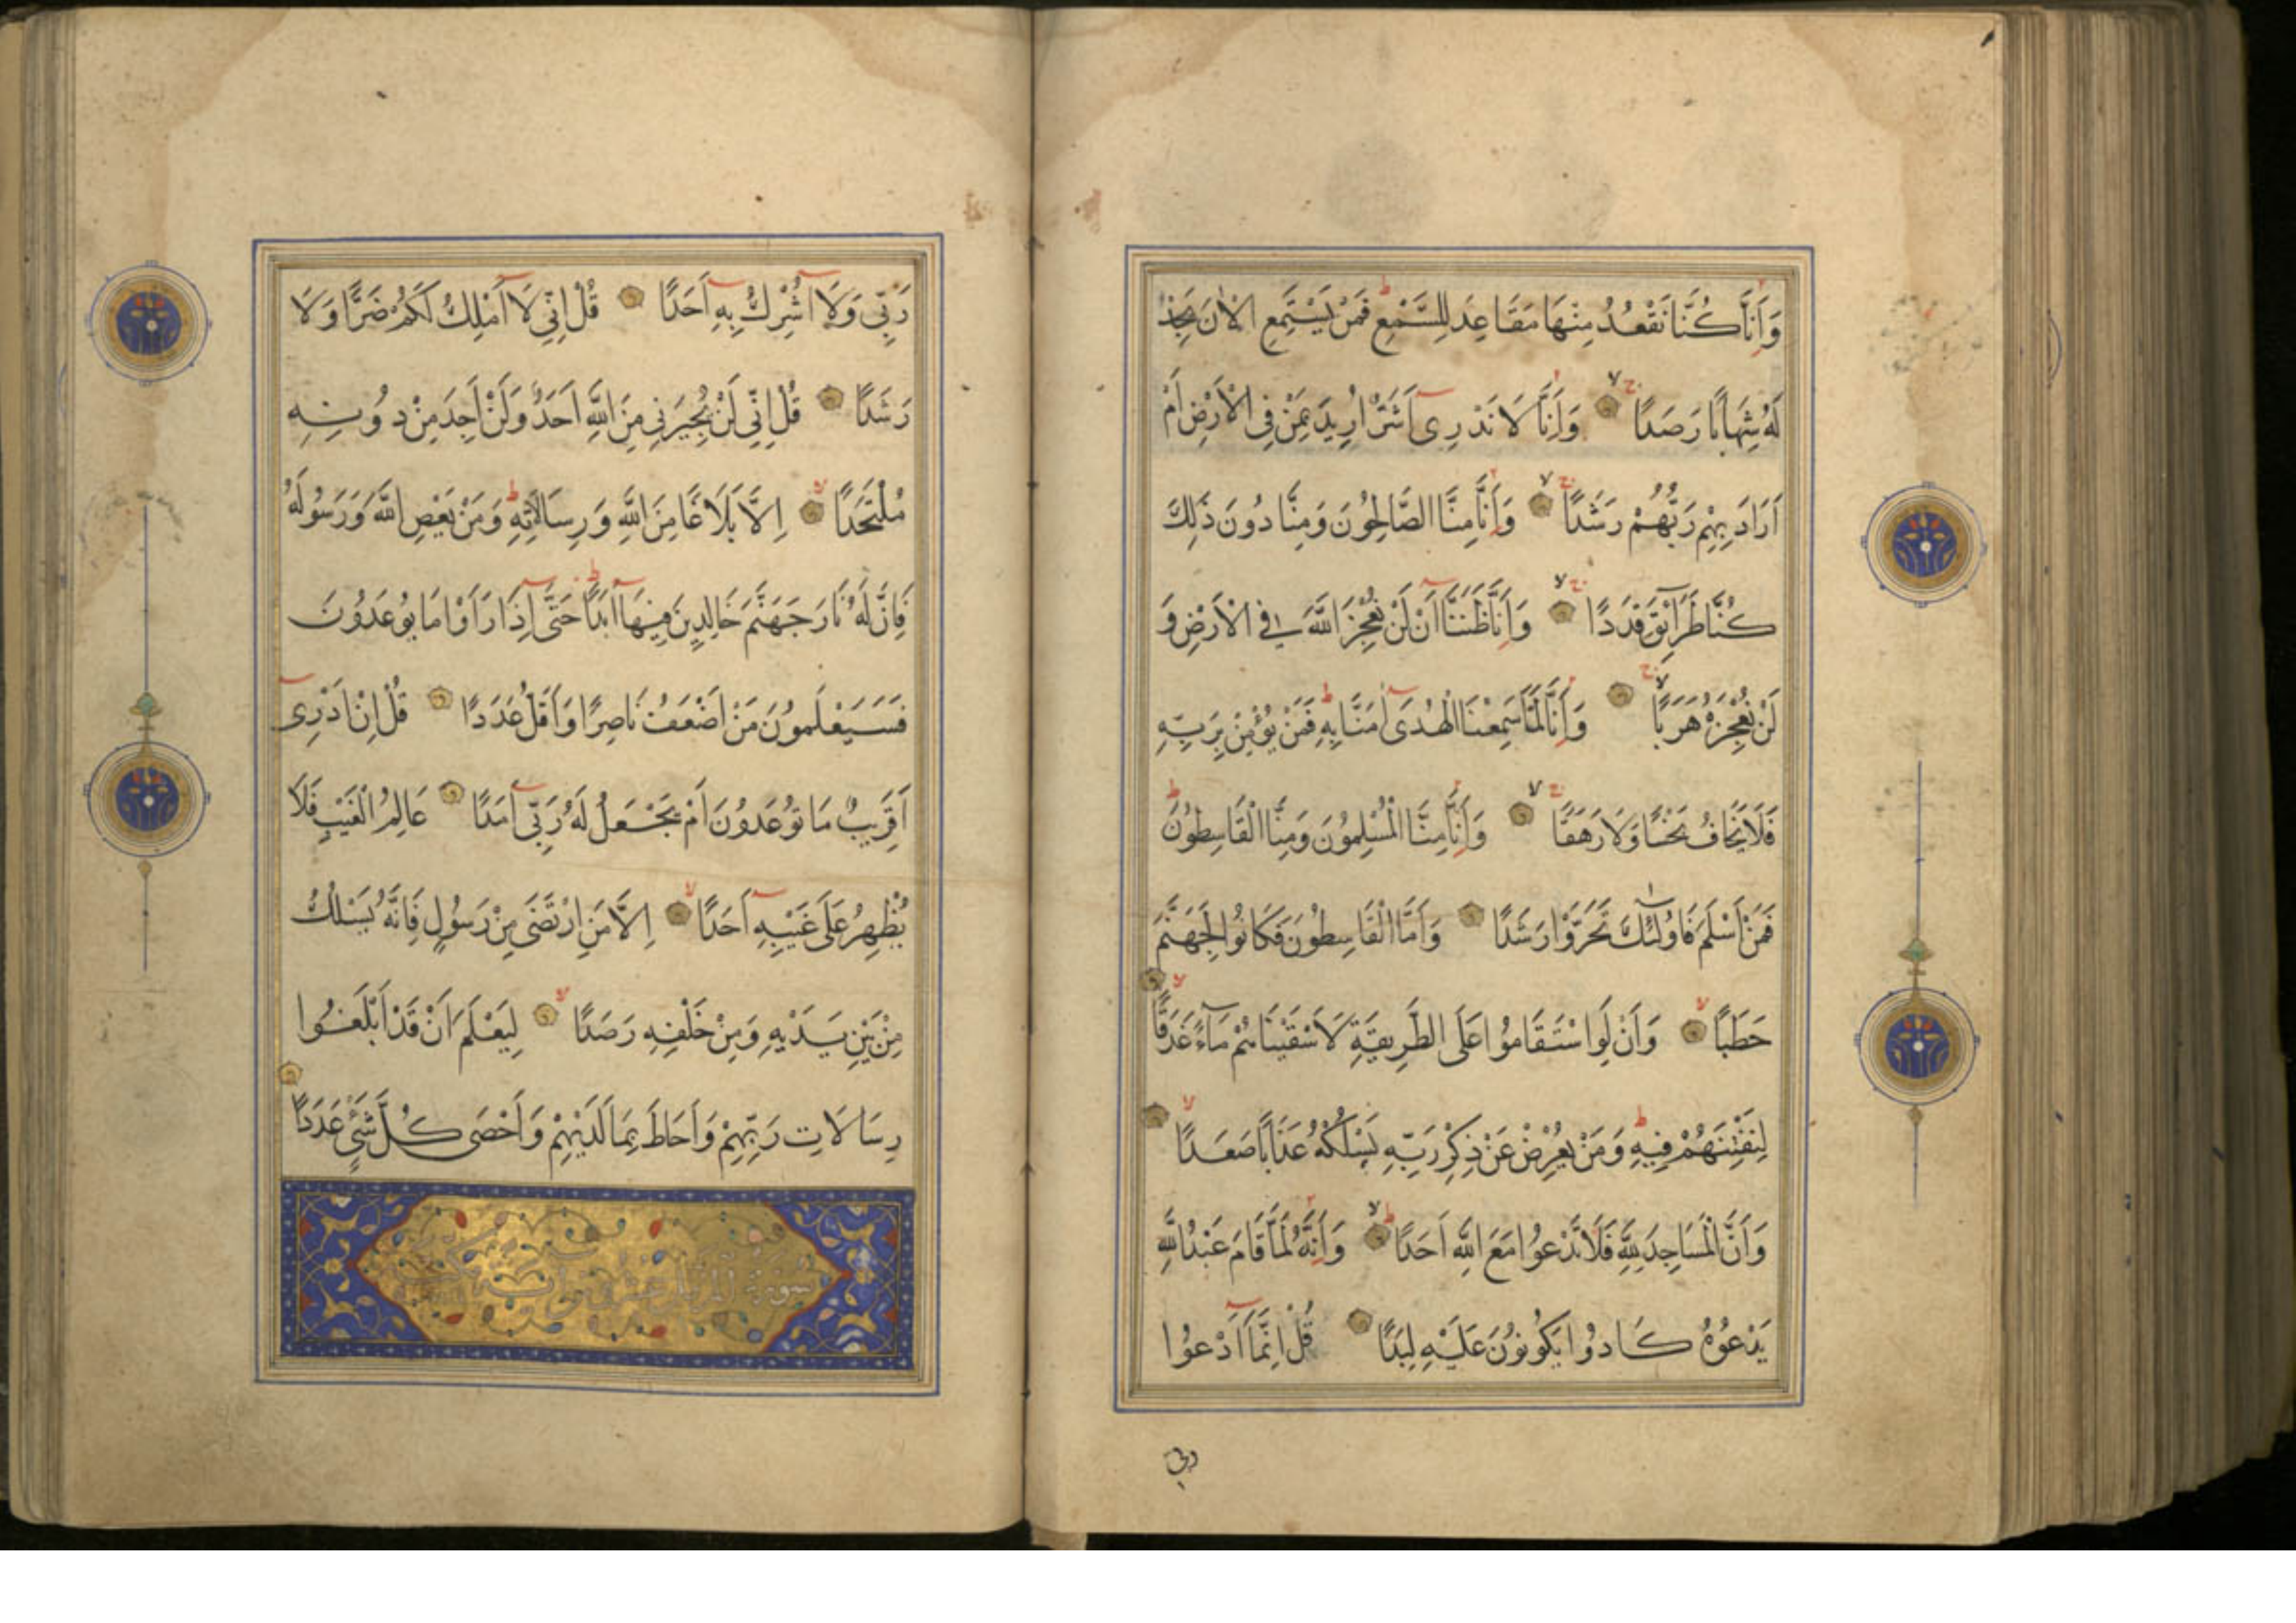 وَأَنَّا كُنَّا نَقْعُدُ مِنْهَا مَقَاعِدَ لِلسَّمْعِ فَمَنْ يَسْتَمِعِ الْاٰنَ يَجِدْ
لَهُ شِهَابًا رَصَدًا وَأَنَّا لَا نَدْرِى أَشَرٌّ اُرِيدَ بِمَنْ فِى الْأَرْضِ أَمْ
أَرَادَ بِهِمْ رَبُّهُمْ رَشَدًا وَأَنَّا مِنَّا الصَّالِحُونَ وَمِنَّا دُونَ ذَلِكَ
كُنَّا طَرَآئِقَ قِدَدًا وَأَنَّا ظَنَنَّا أَنْ لَنْ نُعْجِزَ اللَّهَ فِى الْأَرْضِ وَ
لَنْ نُعْجِزَهُ هَرَبًا وَأَنَّا لَمَّا سَمِعْنَا الْهُدَى اٰمَنَّا بِهِ فَمَنْ يُؤْمِنْ بِرَبِّهِ
فَلَا يَخَافُ بَخْسًا وَلَا رَهَقًا وَأَنَّا مِنَّا الْمُسْلِمُونَ وَمِنَّا الْقَاسِطُونَ
فَمَنْ أَسْلَمَ فَاُولٰئِكَ تَحَرَّوْا رَشَدًا وَأَمَّا الْقَاسِطُونَ فَكَانُوا لِجَهَنَّمَ
حَطَبًا وَأَنْ لَوِ اسْتَقَامُوا عَلَى الطَّرِيقَةِ لَأَسْقَيْنَاهُمْ مَآءً غَدَقًا
لِنَفْتِنَهُمْ فِيهِ وَمَنْ يُعْرِضْ عَنْ ذِكْرِ رَبِّهِ يَسْلُكْهُ عَذَابًا صَعَدًا
وَأَنَّ الْمَسَاجِدَ لِلَّهِ فَلَا تَدْعُوا مَعَ اللَّهِ أَحَدًا وَأَنَّهُ لَمَّا قَامَ عَبْدُ اللَّهِ
يَدْعُوهُ كَادُوا يَكُونُونَ عَلَيْهِ لِبَدًا قُلْ اِنَّمَا أَدْعُوا
ربى
رَبِّى وَلَا اُشْرِكُ بِهِ أَحَدًا قُلْ اِنِّى لَا أَمْلِكُ لَكُمْ ضَرًّا وَلَا
رَشَدًا قُلْ اِنِّى لَنْ يُجِيرَنِى مِنَ اللَّهِ أَحَدٌ وَلَنْ أَجِدَ مِنْ دُونِهِ
مُلْتَحَدًا اِلَّا بَلَاغًا مِنَ اللَّهِ وَرِسَالَاتِهِ وَمَنْ يَعْصِ اللَّهَ وَرَسُولَهُ
فَاِنَّ لَهُ نَارَ جَهَنَّمَ خَالِدِينَ فِيهَا أَبَدًا حَتَّى اِذَا رَأَوْا مَا يُوعَدُونَ
فَسَيَعْلَمُونَ مَنْ أَضْعَفُ نَاصِرًا وَأَقَلُّ عَدَدًا قُلْ اِنْ أَدْرِى
أَقَرِيبٌ مَا تُوعَدُونَ أَمْ يَجْعَلُ لَهُ رَبِّى أَمَدًا عَالِمُ الْغَيْبِ فَلَا
يُظْهِرُ عَلَى غَيْبِهِ أَحَدًا اِلَّا مَنِ ارْتَضَى مِنْ رَسُولٍ فَاِنَّهُ يَسْلُكُ
مِنْ بَيْنِ يَدَيْهِ وَمِنْ خَلْفِهِ رَصَدًا لِيَعْلَمَ أَنْ قَدْ أَبْلَغُوا
رِسَالَاتِ رَبِّهِمْ وَأَحَاطَ بِمَا لَدَيْهِمْ وَأَحْصَى كُلَّ شَىْءٍ عَدَدًا
سورة المزمل